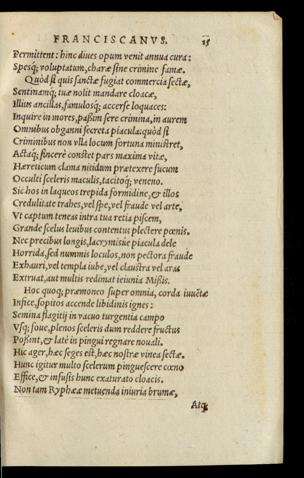 FRANCISCANVS. 25
Permittent: hinc diues opum venit annua cura:
Spesq; voluptatum, charæ sine crimine famæ.
Quòd si quis sanctæ fugiat commercia sectæ,
Sentinamq; tuæ nolit mandare cloacæ,
Illius ancillas, famulosq; accerse loquaces:
Inquire in mores, passim sere crimina, in aurem
Omnibus obganni secreta piacula: quòd si
Criminibus non vlla locum fortuna ministret,
Actaq; sincerè constet pars maxima vitæ,
Hæreticum clama nitidum prætexere fucum
Occulti sceleris maculis, tacitoq; veneno.
Sic hos in laqueos trepida formidine, & illos
Credulitate trahes, vel spe, vel fraude vel arte,
Vt captum teneas intra tua retia piscem,
Grande scelus leuibus contentus plectere pœnis.
Nec precibus longis, lacrymisue piacula dele
Horrida, sed nummis loculos, non pectora fraude
Exhauri, vel templa iube, vel claustra vel aras
Extruat, aut multis redimat ieiunia Missis.
Hoc quoq; præmoneo super omnia, corda iuuẽtæ
Infice, sopitos accende libidinis ignes:
Semina flagitij in vacuo turgentia campo
Vsq; foue, plenos sceleris dum reddere fructus
Possint, & latè in pingui regnare nouali.
Hic ager, hæc seges est, hæc nostræ vinea sectæ.
Hunc igitur multo scelerum pinguescere cœno
Effice, & infusis hunc exaturato cloacis.
Non tam Ryphææ metuenda iniuria brumæ,
Atq;